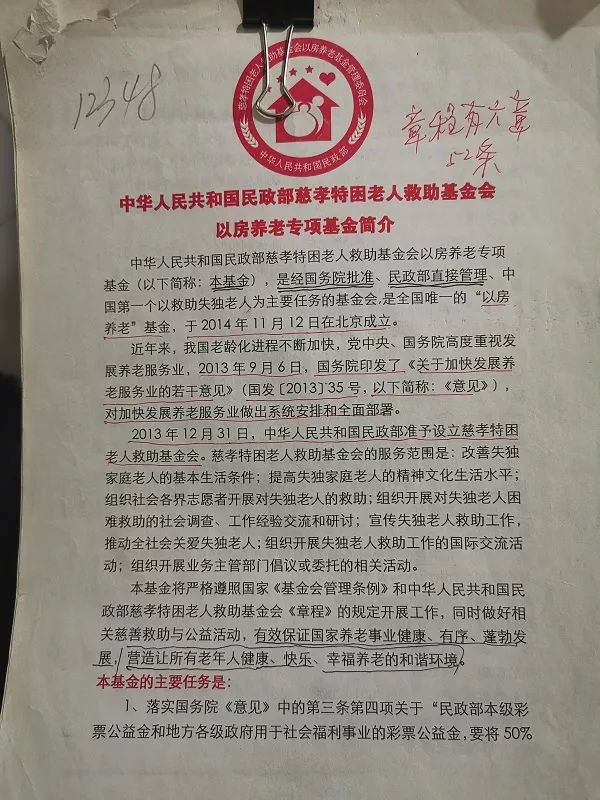 慈孝特困老人救助基金会以房养老基金管理委员会
中华人民共和国民政部
12348
章程有六章
52条
中华人民共和国民政部慈孝特困老人救助基金会
以房养老专项基金简介
中华人民共和国民政部慈孝特困老人救助基金会以房养老专项
基金（以下简称：本基金），是经国务院批准、民政部直接管理、中
国第一个以救助失独老人为主要任务的基金会，是全国唯一的“以房
养老”基金，于2014年11月12日在北京成立。
近年来，我国老龄化进程不断加快，党中央、国务院高度重视发
展养老服务业，2013年9月6日，国务院印发了《关于加快发展养
老服务业的若干意见》（国发［2013］35号，以下简称：《意见》），
对加快发展养老服务业做出系统安排和全面部署。
2013年12月31日，中华人民共和国民政部准予设立慈孝特困
老人救助基金会。慈孝特困老人救助基金会的服务范围是：改善失独
家庭老人的基本生活条件；提高失独家庭老人的精神文化生活水平；
组织社会各界志愿者开展对失独老人的救助；组织开展对失独老人困
难救助的社会调查、工作经验交流和研讨；宣传失独老人救助工作，
推动全社会关爱失独老人；组织开展失独老人救助工作的国际交流活
动；组织开展业务主管部门倡议或委托的相关活动。
本基金将严格遵照国家《基金会管理条例》和中华人民共和国民
政部慈孝特困老人救助基金会《章程》的规定开展工作，同时做好相
关慈善救助与公益活动，有效保证国家养老事业健康、有序、蓬勃发
展，营造让所有老年人健康、快乐、幸福养老的和谐环境。
本基金的主要任务是：
1、落实国务院《意见》中的第三条第四项关于“民政部本级彩
票公益金和地方各级政府用于社会福利事业的彩票公益金，要将50%